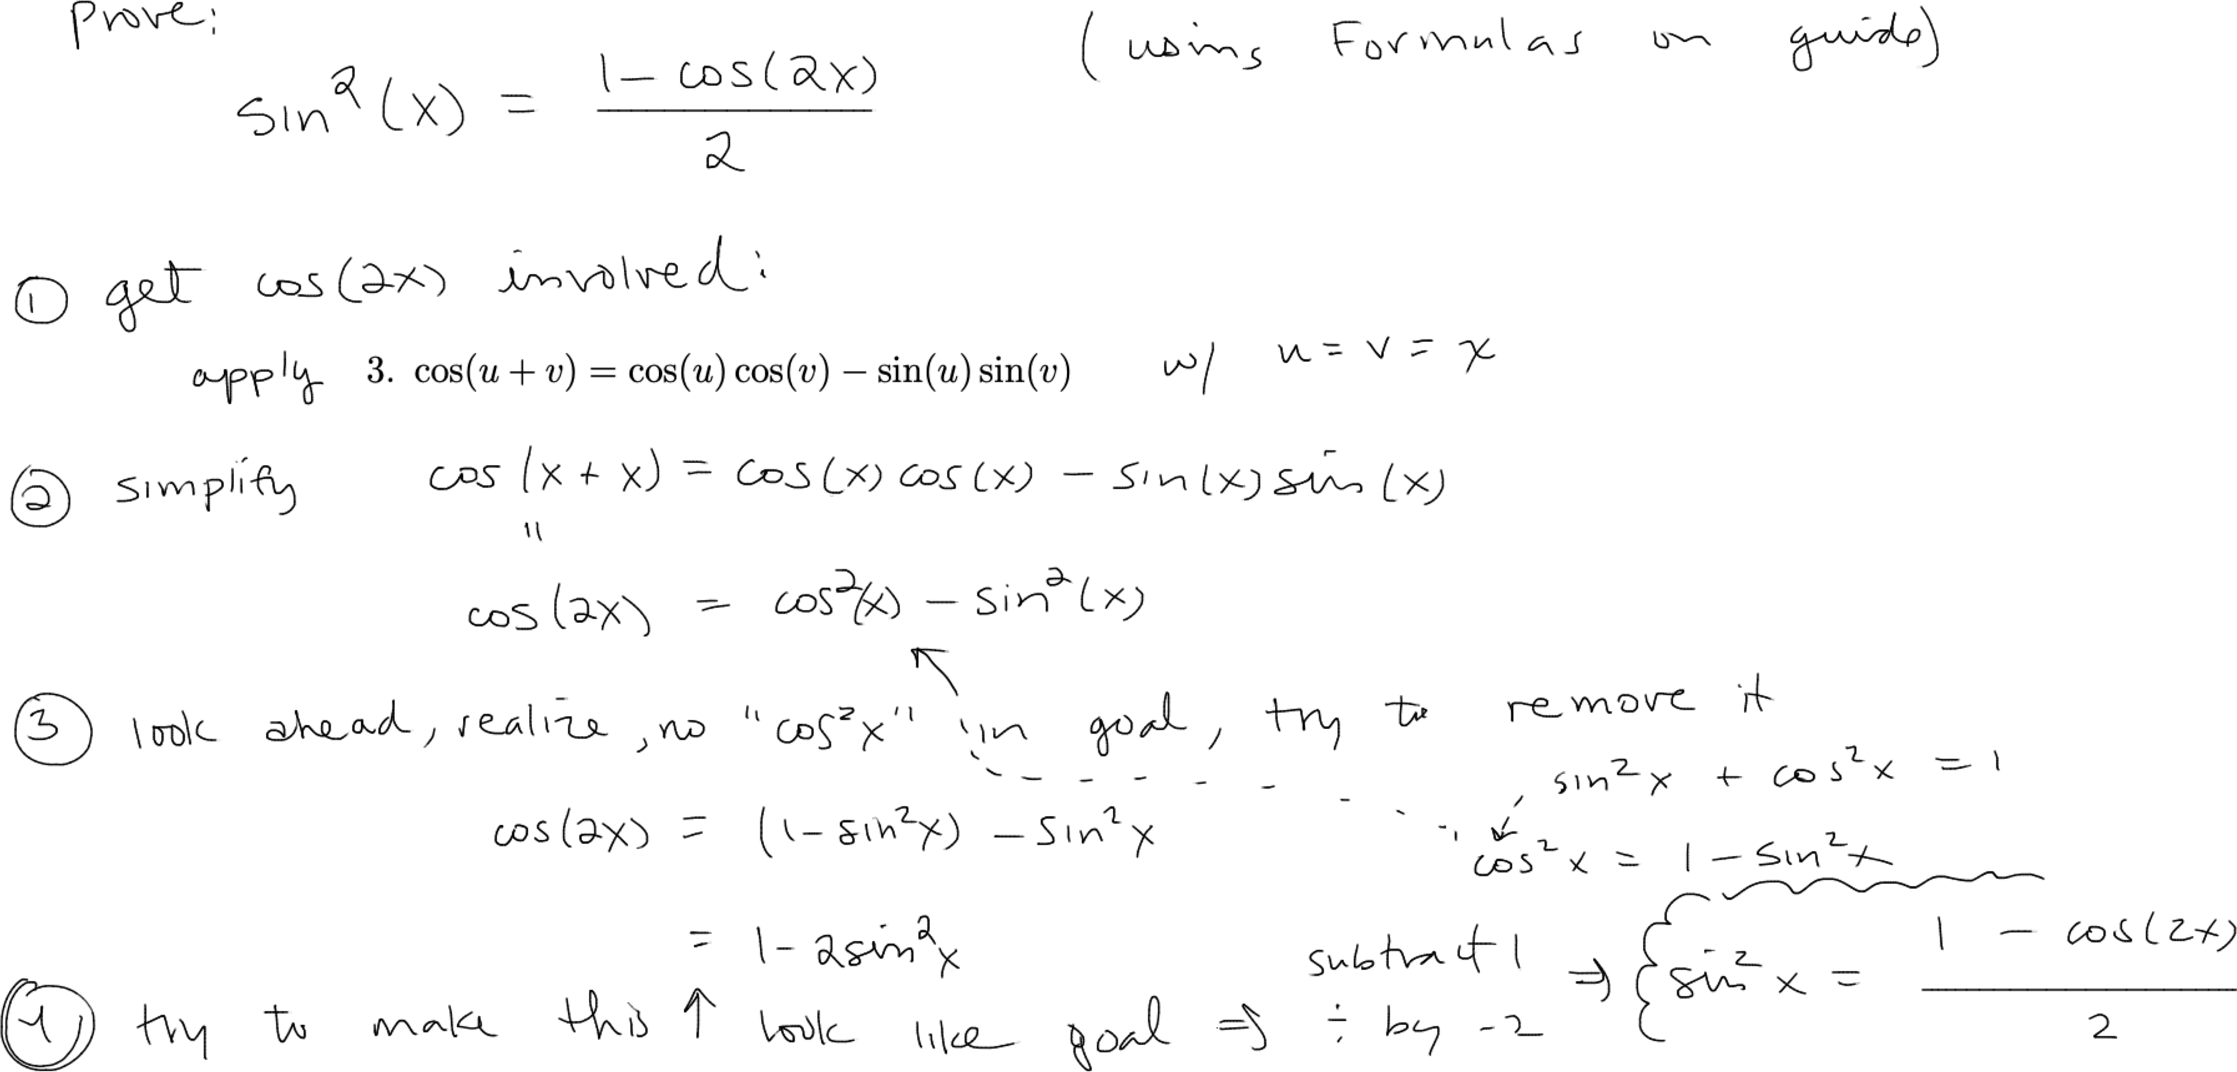 Prove: (using Formulas on guide)
sin²(x) = \frac{1 - cos(2x)}{2}
① get cos(2x) involved:
apply 3. cos(u + v) = cos(u) cos(v) − sin(u) sin(v) w/ u = v = x
② simplify cos(x + x) = cos(x) cos(x) − sin(x) sin(x)
"
cos(2x) = cos²(x) − sin²(x)
③ look ahead, realize, no "cos²x" in goal, try to remove it
sin²x + cos²x = 1
cos(2x) = (1 − sin²x) − sin²x
cos²x = 1 − sin²x
= 1 − 2sin²x
④ try to make this ↑ look like goal ⇒ subtract 1 ÷ by −2 ⇒ { sin²x = \frac{1 − cos(2x)}{2}